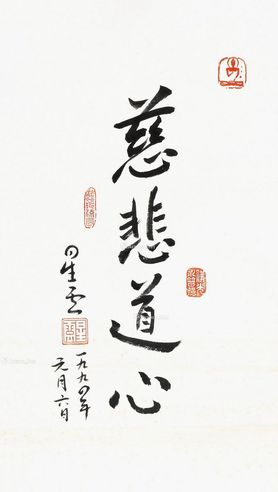 慈悲道心
星云
一九九四年
元月六日